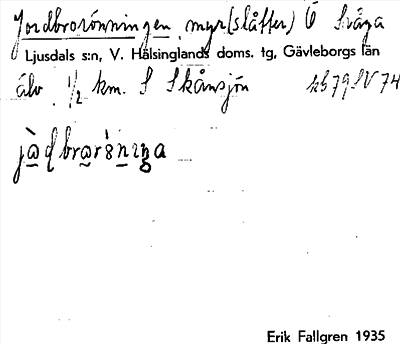 Jordbrorönningen, myr (slåtter) Ö Svåga
Ljusdals s:n, V. Hälsinglands doms. tg, Gävleborgs län
älv. 1/2 km. S Skånsjön
Erik Fallgren 1935